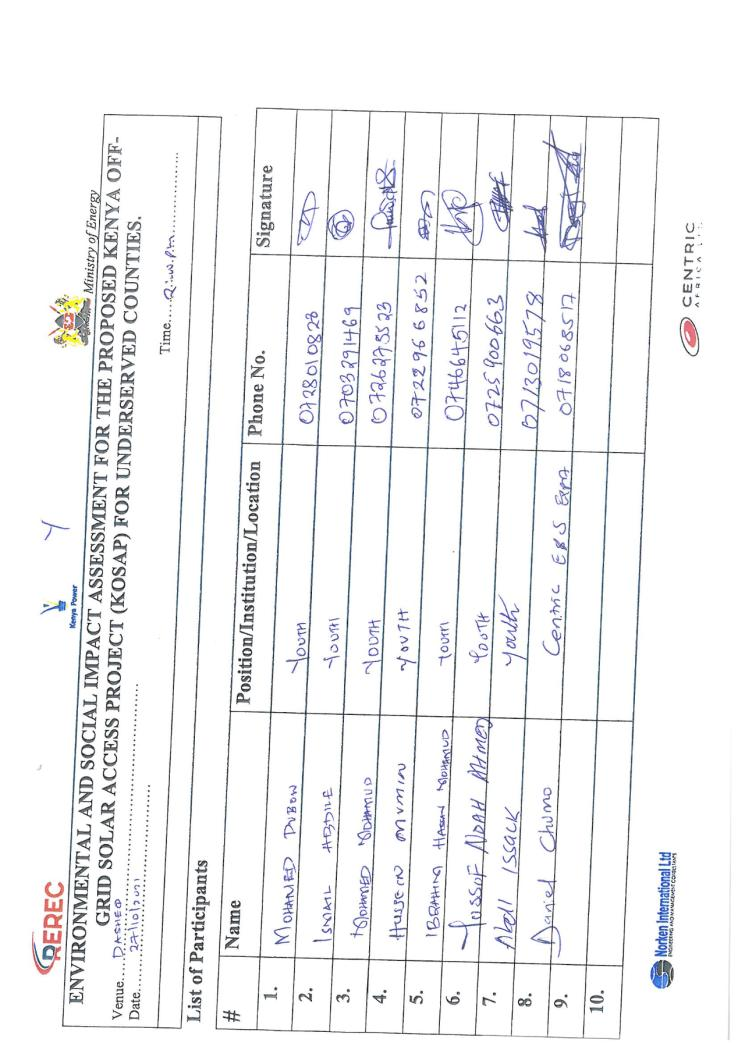 REREC
Kenya Power
Ministry of Energy
ENVIRONMENTAL AND SOCIAL IMPACT ASSESSMENT FOR THE PROPOSED KENYA OFF-
GRID SOLAR ACCESS PROJECT (KOSAP) FOR UNDERSERVED COUNTIES.
Venue.... DASHEQ
Date.... 27/10/2021 Time....
List of Participants
# Name Position/Institution/Location Phone No. Signature
1. MOHAMED DUBOW YOUTH 0728010828
2. ISMAIL ABDILE YOUTH 0703291469
3. MOHAMED MOHAMUD YOUTH 0726275523
4. Hussein MUMIN YOUTH 0722966852
5. IBRAHIM HASSAN MOHAMUD YOUTH 0746645112
6. Yussof NOAH AHMED YOOTH 0725900663
7. Abdi ISSACK Youth 0713019578
8. Daniel Chumo Centric E&S Expert 0718068517
9.
10.
Norken International Ltd
ENGINEERING AND MANAGEMENT CONSULTANTS
CENTRIC
AFRICA LTD